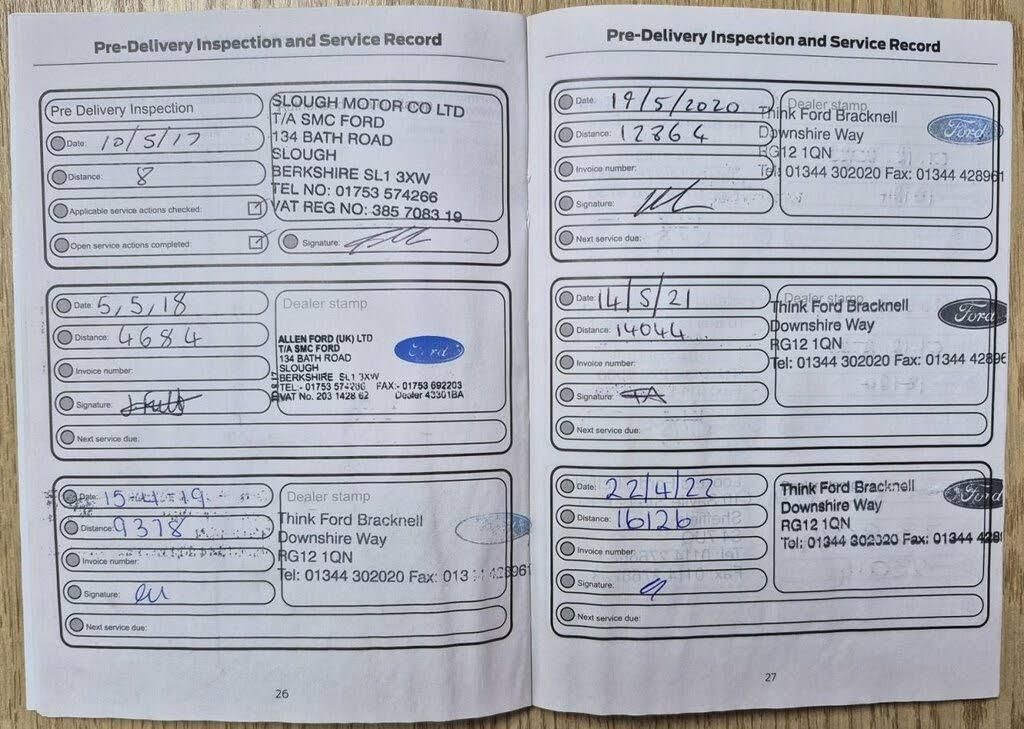 Pre-Delivery Inspection and Service Record
Pre Delivery Inspection
Date: 10/5/17
Distance: 8
Applicable service actions checked:
Open service actions completed:
SLOUGH MOTOR CO LTD
T/A SMC FORD
134 BATH ROAD
SLOUGH
BERKSHIRE SL1 3XW
TEL NO: 01753 574266
VAT REG NO: 385 7083 19
Signature:
Date: 5,5,18
Distance: 4684
Invoice number:
Signature:
Next service due:
Dealer stamp
ALLEN FORD (UK) LTD
T/A SMC FORD
134 BATH ROAD
SLOUGH
BERKSHIRE SL1 3XW
TEL:- 01753 574266 FAX:- 01753 692203
VAT No. 203 1428 62 Dealer 43301BA
Ford
Date: 15-4-19
Distance: 9378
Invoice number:
Signature:
Next service due:
Dealer stamp
Think Ford Bracknell
Downshire Way
RG12 1QN
Tel: 01344 302020 Fax: 01344 428961
26
Pre-Delivery Inspection and Service Record
Date: 19/5/2020
Distance: 12864
Invoice number:
Signature:
Next service due:
Dealer stamp
Think Ford Bracknell
Downshire Way
RG12 1QN
Tel: 01344 302020 Fax: 01344 428961
Ford
Date: 14/5/21
Distance: 14044
Invoice number:
Signature:
Next service due:
Dealer stamp
Think Ford Bracknell
Downshire Way
RG12 1QN
Tel: 01344 302020 Fax: 01344 4289
Ford
Date: 22/4/22
Distance: 16126
Invoice number:
Signature:
Next service due:
Think Ford Bracknell
Downshire Way
RG12 1QN
Tel: 01344 302020 Fax: 01344 428
Ford
27